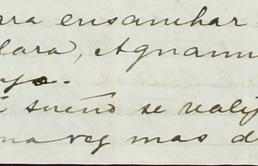 ra ensanchar
lara, Agnanu
yo.
sueño se valij
na vez mas d